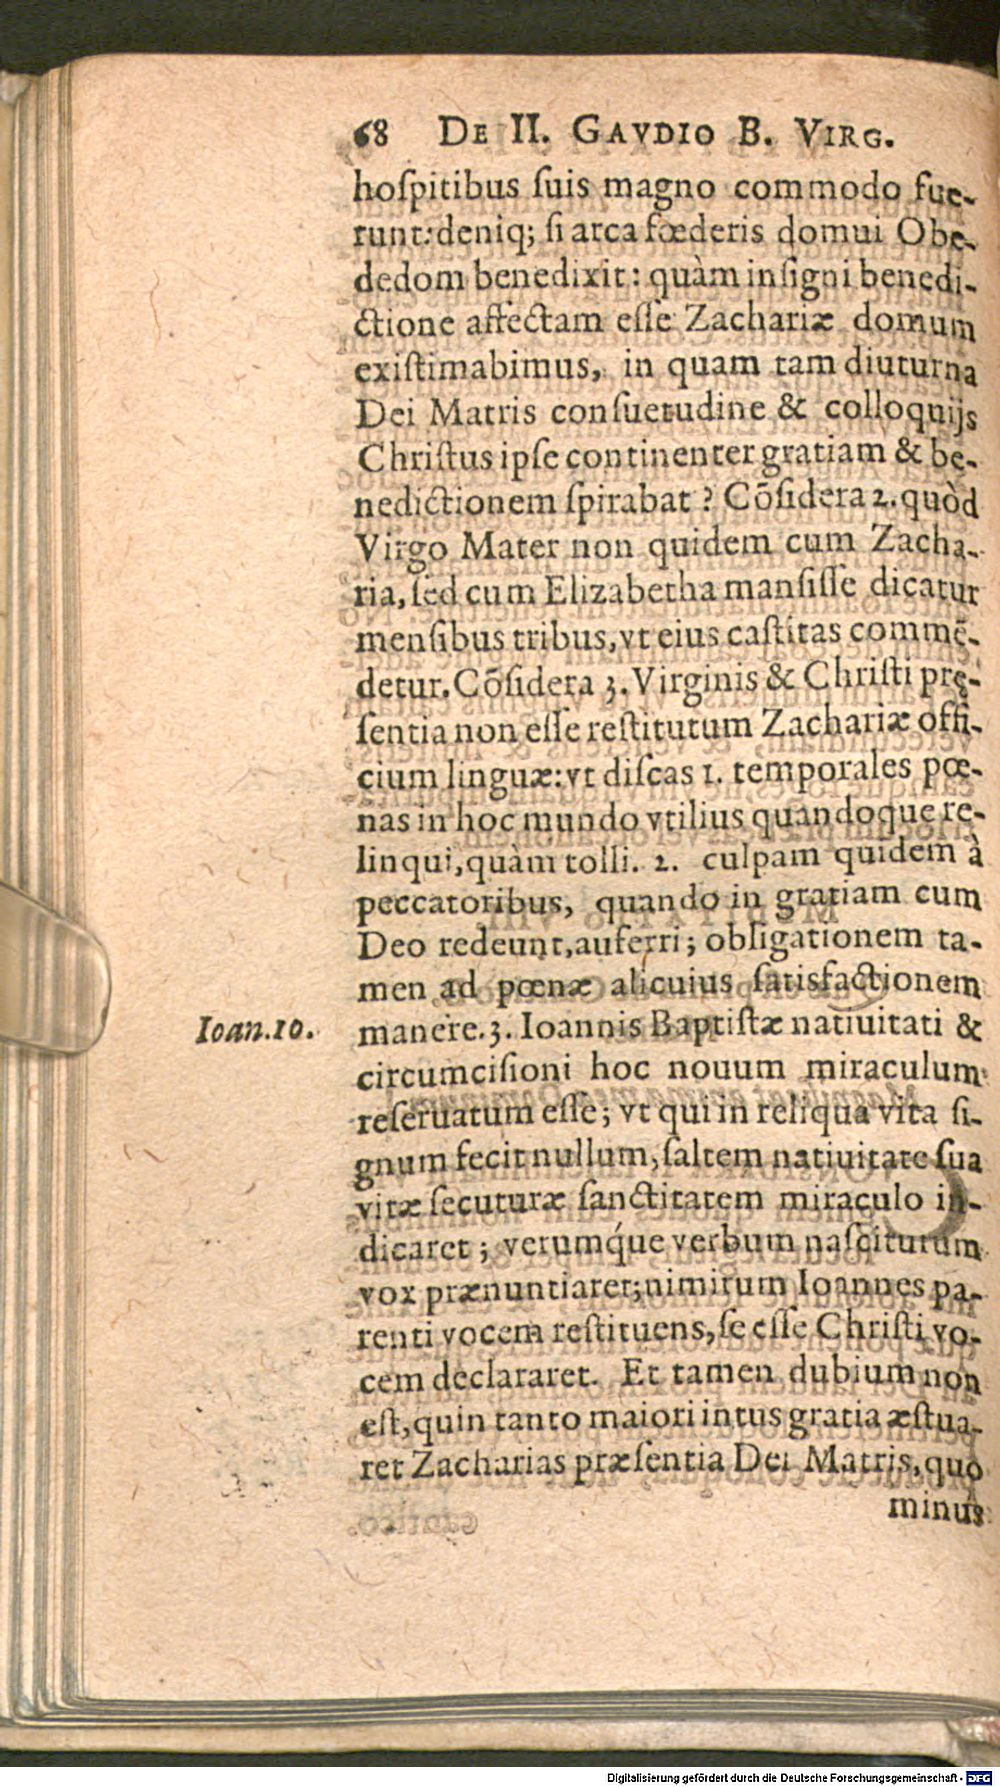 68 DE II. GAVDIO B. VIRG.
hoſpitibus ſuis magno commodo fue-
runt: deniq; ſi arca fœderis domui Obe-
dedom benedixit: quàm inſigni benedi-
ctione affectam eſſe Zachariæ domum
existimabimus, in quam tam diuturna
Dei Matris conſuetudine & colloquijs
Chriſtus ipſe continenter gratiam & be-
nedictionem ſpirabat? Cõſidera 2. quòd
Virgo Mater non quidem cum Zacha-
ria, ſed cum Elizabetha manſiſſe dicatur
menſibus tribus, vt eius caſtitas commẽ-
detur. Cõſidera 3. Virginis & Chriſti prę-
ſentia non eſſe reſtitutum Zachariæ offi-
cium linguæ: vt diſcas 1. temporales pœ-
nas in hoc mundo vtilius quandoque re-
linqui, quàm tolli. 2. culpam quidem à
peccatoribus, quando in gratiam cum
Deo redeunt, auferri; obligationem ta-
men ad pœnæ alicuius ſatisfactionem
Ioan.10. manere. 3. Ioannis Baptiſtæ natiuitati &
circumciſioni hoc nouum miraculum
reſeruatum eſſe; vt qui in reliqua vita ſi-
gnum fecit nullum, ſaltem natiuitate ſua
vitæ ſecuturæ ſanctitatem miraculo in-
dicaret; verumq́ue verbum naſciturum
vox prænuntiaret; nimirum Ioannes pa-
renti vocem reſtituens, ſe eſſe Chriſti vo-
cem declararet. Et tamen dubium non
eſt, quin tanto maiori intus gratia æſtua-
ret Zacharias præſentia Dei Matris, quo
minus
Digitalisierung gefördert durch die Deutsche Forschungsgemeinschaft - DFG